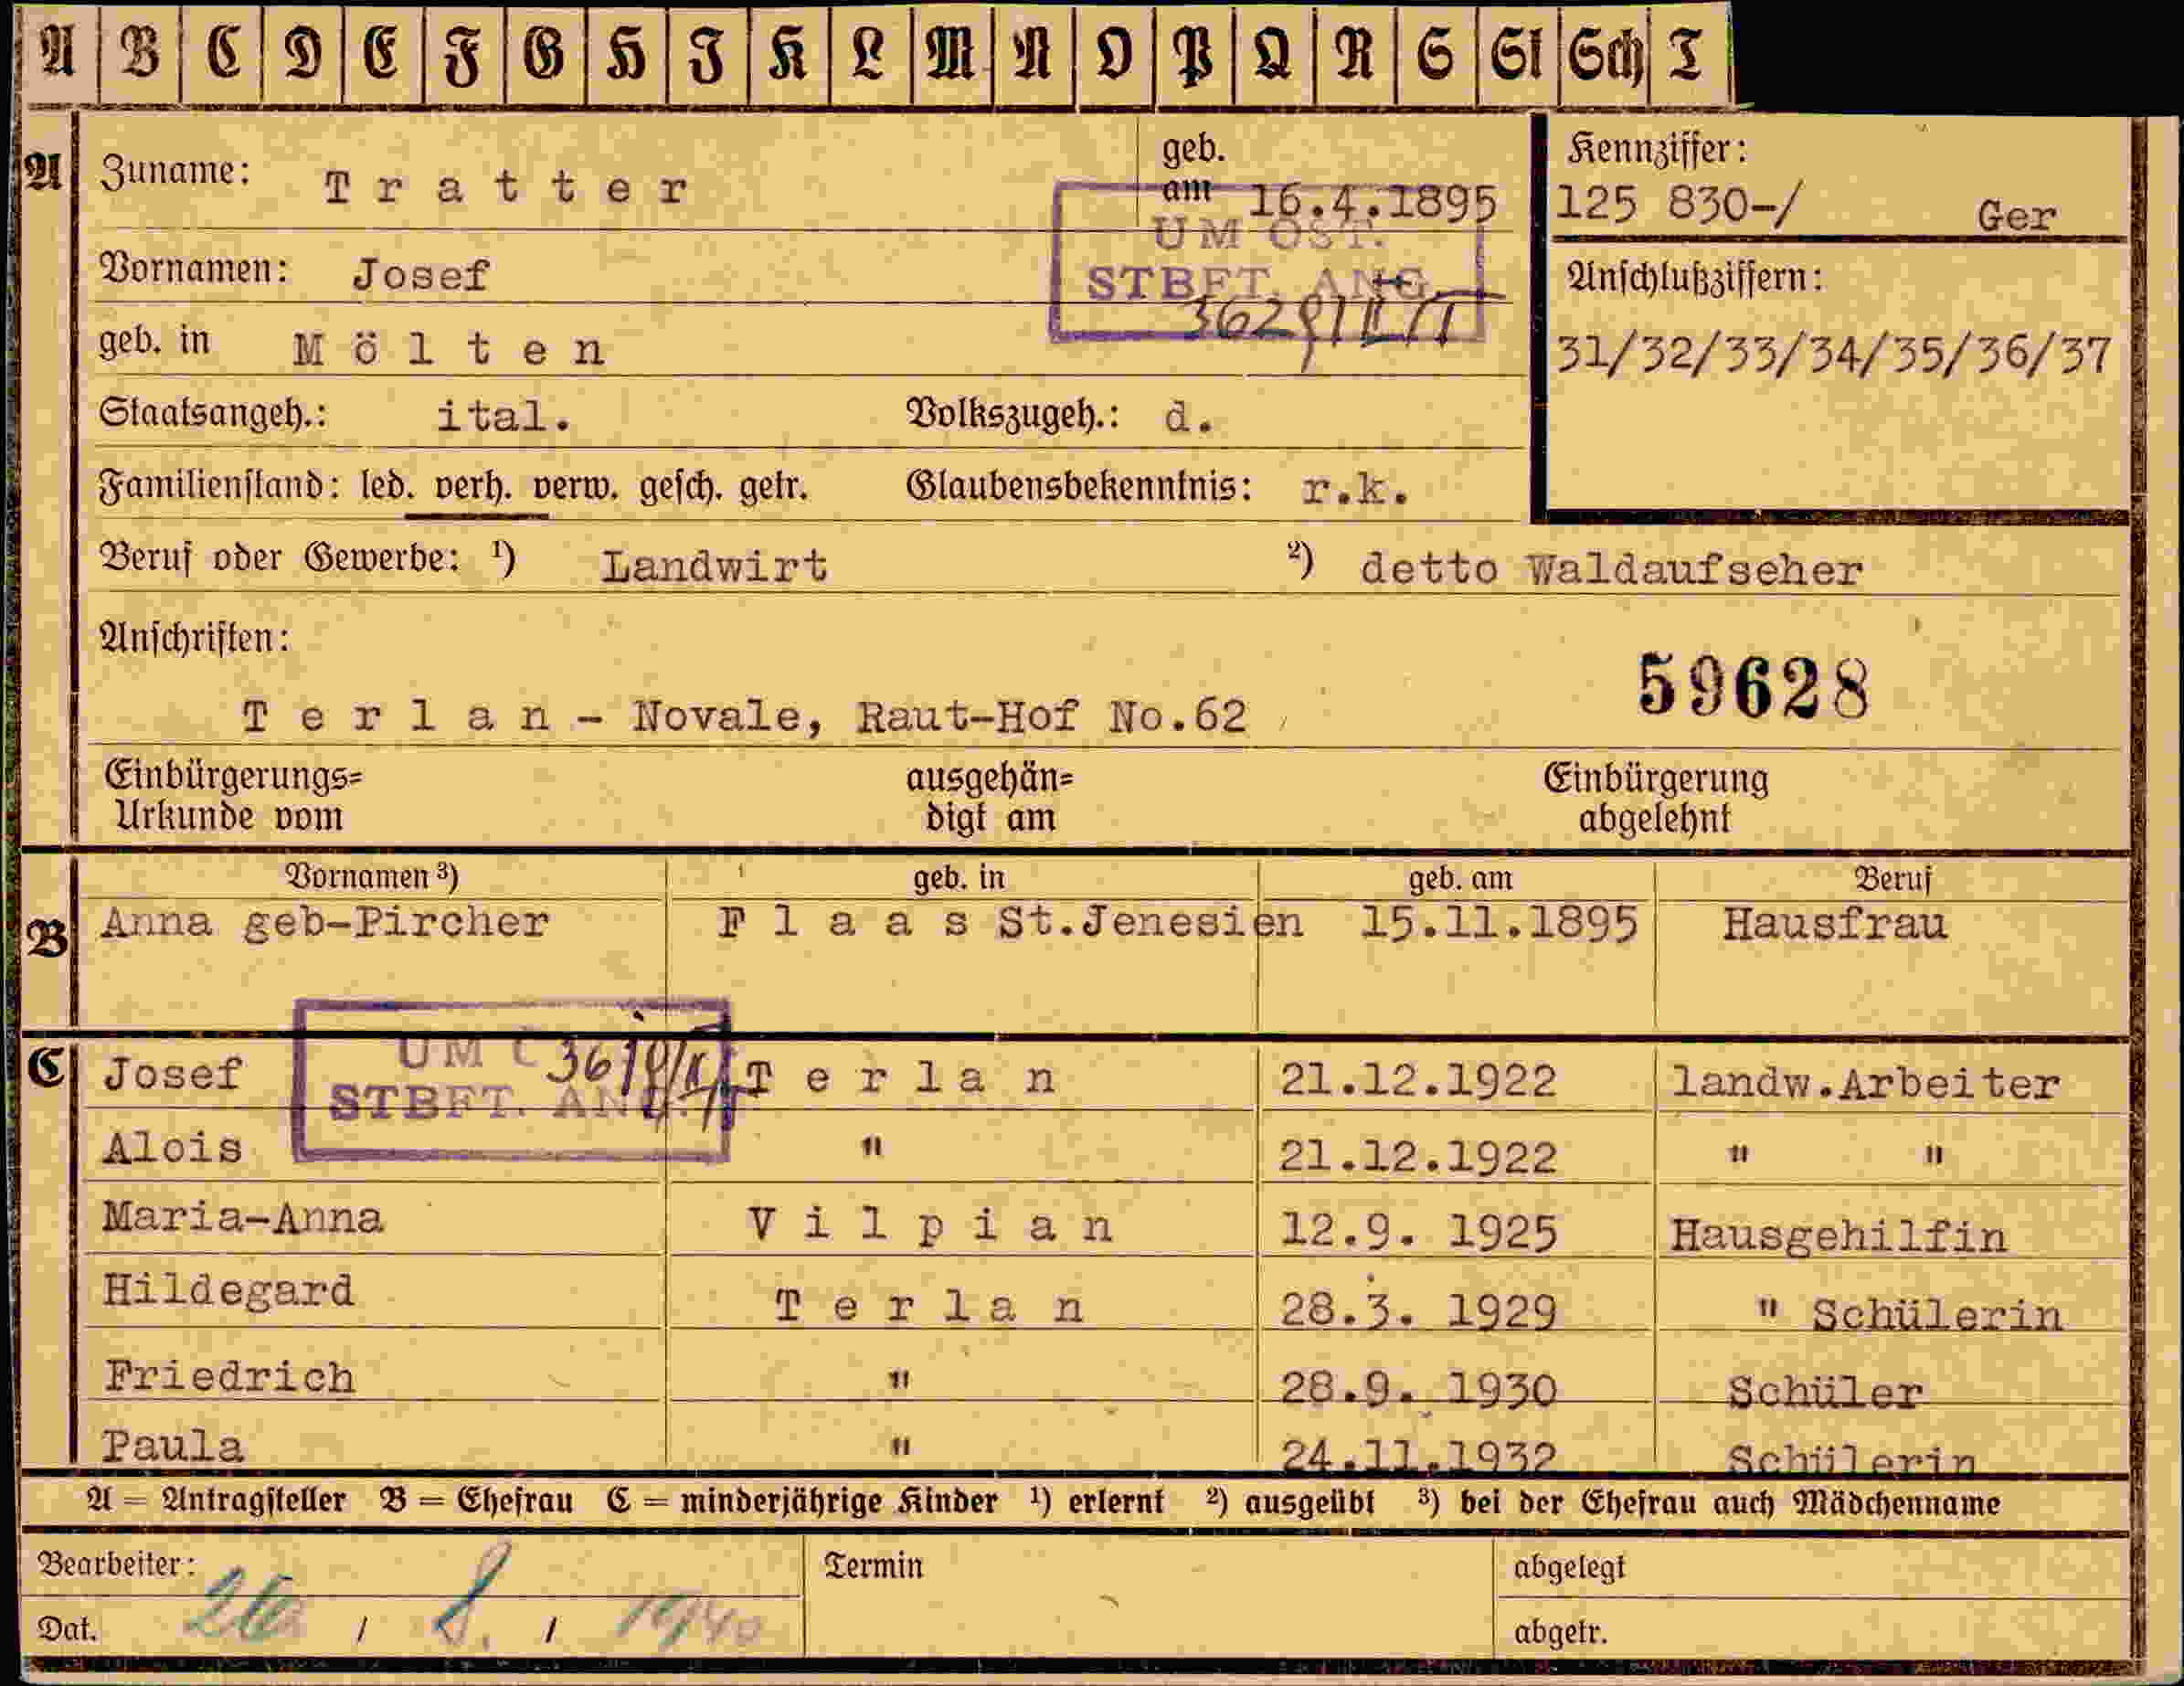 A B C D E F G H I K L M N O P Q R S St Sch T
A
Zuname: Tratter
geb. am 16.4.1895
Kennziffer:
125 830-/ Ger
UM OST.
STBFT. ANG.
Vornamen: Josef
Anschlußziffern:
31/32/33/34/35/36/37
geb. in Mölten
Staatsangeh.: ital. Volkszugeh.: d.
Familienstand: led. verh. verw. gesch. getr. Glaubensbekenntnis: r.k.
Beruf oder Gewerbe: ¹) Landwirt ²) detto Waldaufseher
Anschriften:
59628
Terlan - Novale, Raut-Hof No.62
Einbürgerungs= ausgehän= Einbürgerung
Urkunde vom digt am abgelehnt
Vornamen ³) geb. in geb. am Beruf
B
Anna geb-Pircher Flaas St.Jenesien 15.11.1895 Hausfrau
UM
STBFT. ANG.
C
Josef Terlan 21.12.1922 landw.Arbeiter
Alois " 21.12.1922 " "
Maria-Anna Vilpian 12.9. 1925 Hausgehilfin
Hildegard Terlan 28.3. 1929 " Schülerin
Friedrich " 28.9. 1930 Schüler
Paula " 24.11.1932 Schülerin
A = Antragsteller B = Ehefrau C = minderjährige Kinder ¹) erlernt ²) ausgeübt ³) bei der Ehefrau auch Mädchenname
Bearbeiter: Termin abgelegt
Dat. 26 / 8. / 1940 abgetr.